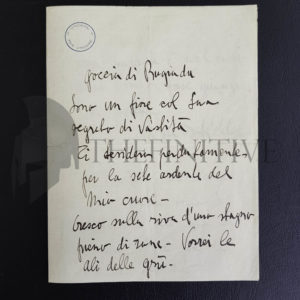 goccia di Rugiada
Sono un fiore col suo
segreto di Vastità
Ti desidera perdutamente
per la sete ardente del
mio cuore -
Cresco sulla riva d'uno stagno
pieno di rane - Vorrei le
ali delle gru -
THEFINITIVE